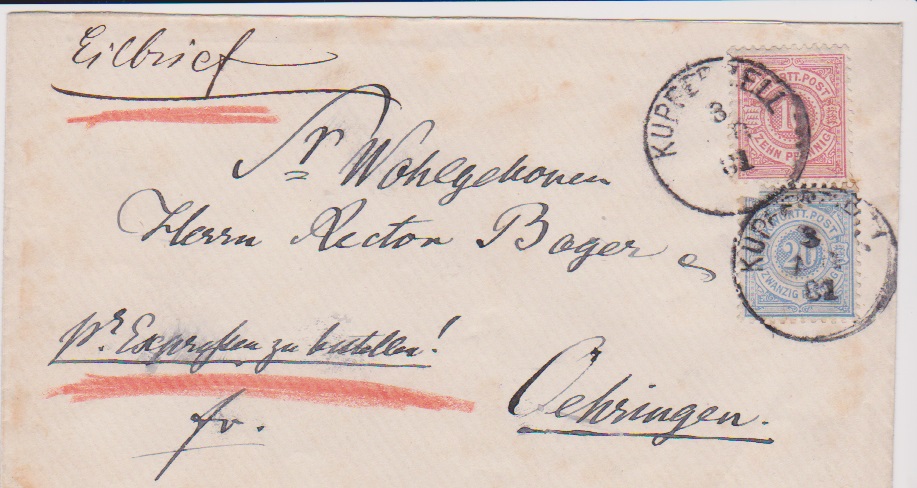 Eilbrief
Sr Wohlgeboren
Herrn Rector Bager
pr Expressen zu bestellen!
fr.
Oehringen.
KUPFERZELL
3
81
WÜRTT. POST
10
ZEHN PFENNIG
KUPFERZELL
3
81
WÜRTT. POST
20
ZWANZIG PFENNIG